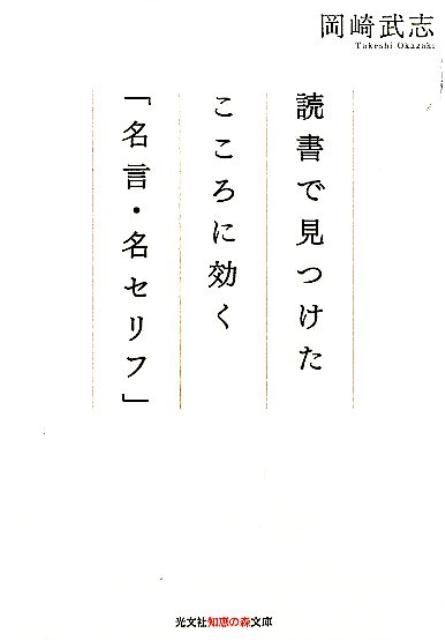 岡崎武志
Takeshi Okazaki
読書で見つけた
こころに効く
「名言・名セリフ」
光文社知恵の森文庫